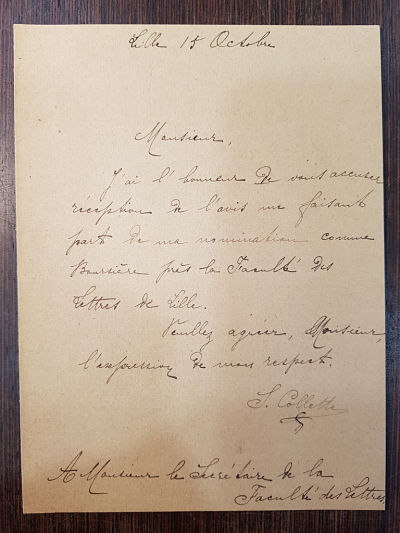 Lille 15 Octobre
Monsieur,
J'ai l'honneur de vous accuser
réception de l'avis me faisant
part de ma nomination comme
Boursière près la Faculté des
Lettres de Lille.
Veuillez agréer, Monsieur,
l'expression de mon respect.
S. Collette
A Monsieur le Secrétaire de la
Faculté des Lettres